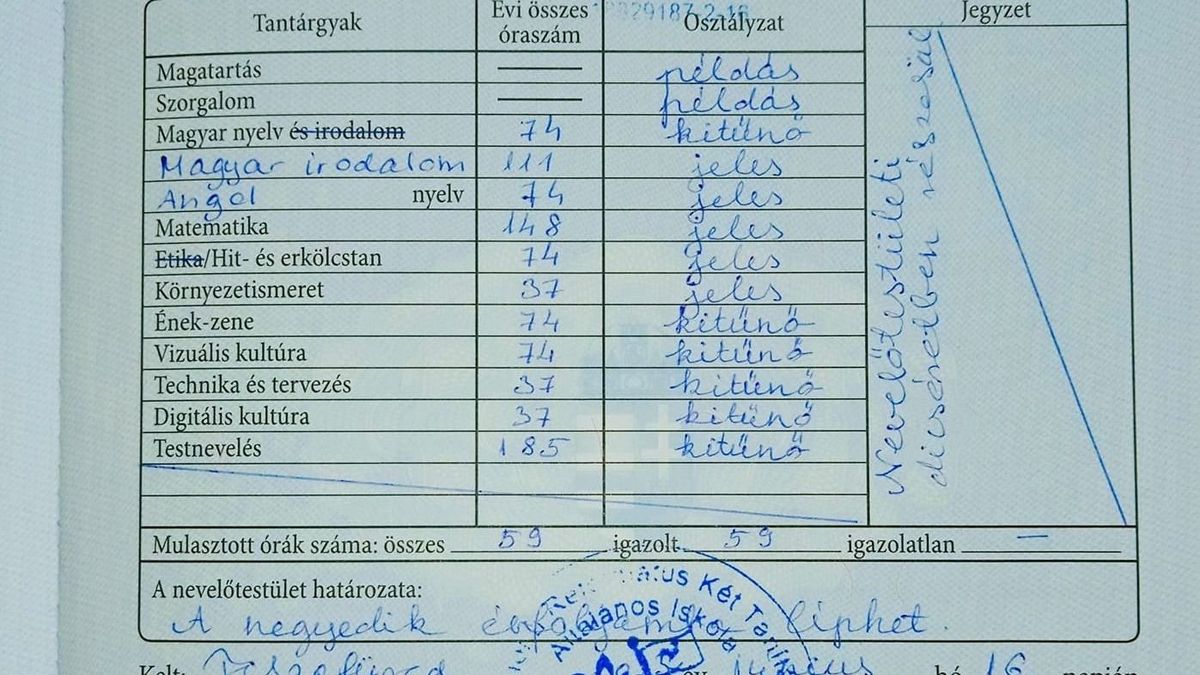 Tantárgyak Évi összes óraszám Osztályzat Jegyzet
Magatartás — példás
Szorgalom — példás
Magyar nyelv és irodalom 74 kitűnő
Magyar irodalom 111 jeles
Angol nyelv 74 jeles
Matematika 148 jeles
Etika/Hit- és erkölcstan 74 jeles
Környezetismeret 37 jeles
Ének-zene 74 kitűnő
Vizuális kultúra 74 kitűnő
Technika és tervezés 37 kitűnő
Digitális kultúra 37 kitűnő
Testnevelés 185 kitűnő
Nevelőtestületi
dicséretben részesül
Mulasztott órák száma: összes 59 igazolt 59 igazolatlan —
A nevelőtestület határozata:
A negyedik évfolyamba léphet.
Református Két Taní
Általános Iskola
Kelt: Tiszafüred év június hó 16 napján